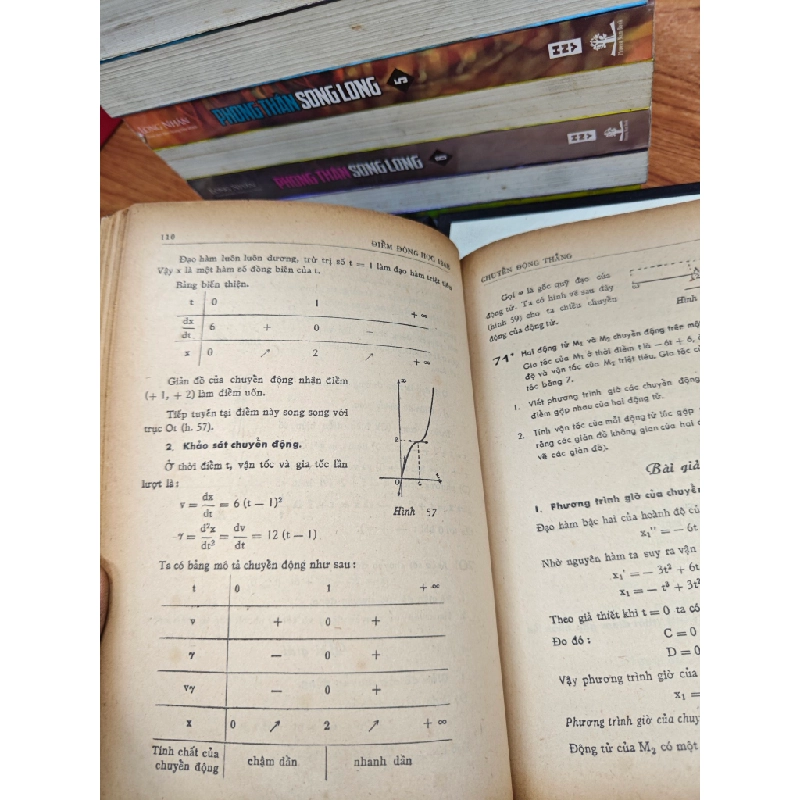 HNY
PHONG THẦN SONG LONG 5
HNY
PHONG THẦN SONG LONG 6
110
ĐIỂM ĐỘNG HỌC
Đạo hàm luôn luôn dương, trừ trị số t = 1 làm đạo hàm triệt tiêu
Vậy x là một hàm số đồng biến của t.
Bảng biến thiên.
t 0 1 + ∞
dx/dt 6 + 0 −
x 0 ↗ 2 ↗ + ∞
Giản đồ của chuyển động nhận điểm
(+ 1, + 2) làm điểm uốn.
Tiếp tuyến tại điểm này song song với
trục Ot (h. 57).
2. Khảo sát chuyển động.
Ở thời điểm t, vận tốc và gia tốc lần
lượt là :
v = dx/dt = 6 (t − 1)²
γ = d²x/dt² = dv/dt = 12 (t − 1)
x
2
0
t
Hình 57
Ta có bảng mô tả chuyển động như sau :
t 0 1 + ∞
v + 0 +
γ − 0 +
vγ − 0 +
x 0 ↗ 2 ↗ + ∞
Tính chất của
chuyển động chậm dần nhanh dần
CHUYỂN ĐỘNG THẲNG
Gọi o là gốc quỹ đạo của
động tử. Ta có hình vẽ sau đây
(hình 59) cho ta chiều chuyển
động của động tử.
Hình
71* Hai động tử M₁ và M₂ chuyển động trên một
Gia tốc của M₁ ở thời điểm t là − 6t + 6,
độ và vận tốc của M₁ triệt tiêu. Gia tốc c
tốc bằng 7.
1. Viết phương trình giờ các chuyển động
điểm gặp nhau của hai động tử.
2. Tính vận tốc của mỗi động tử lúc gặp
rằng các giản đồ không gian của hai
vẽ các giản đồ).
Bài giả
1. Phương trình giờ của chuyển
Đạo hàm bậc hai của hoành độ củ
x₁″ = − 6t
Nhờ nguyên hàm ta suy ra vận
x₁′ = − 3t² + 6t
x₁ = − t³ + 3t²
Theo giả thiết khi t = 0 ta có
Do đó : C = 0
D = 0
Vậy phương trình giờ của
x₁ =
Phương trình giờ của chuy
Động tử của M₂ có một